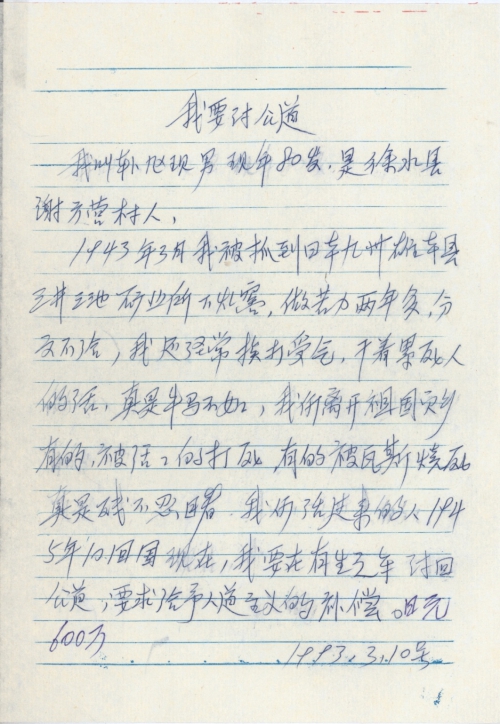 我要讨公道
我叫韩旭现男 现年80岁.是徐水县
谢方营村人,
1943年3月我被抓到日本九州佐车县
三井三池矿业所 做苦力两年多,分
文不给,我还经常挨打受气,干着累死人
的活,真是牛马不如,我们离开祖国
有的,被活:的打死,有的被瓦斯烧死
真是残不忍目睹.我们活过来的人194
5年10回国现在,我要在有生之年讨回
公道,要求给予人道主义的补偿.日元
600万
1993.3.10号